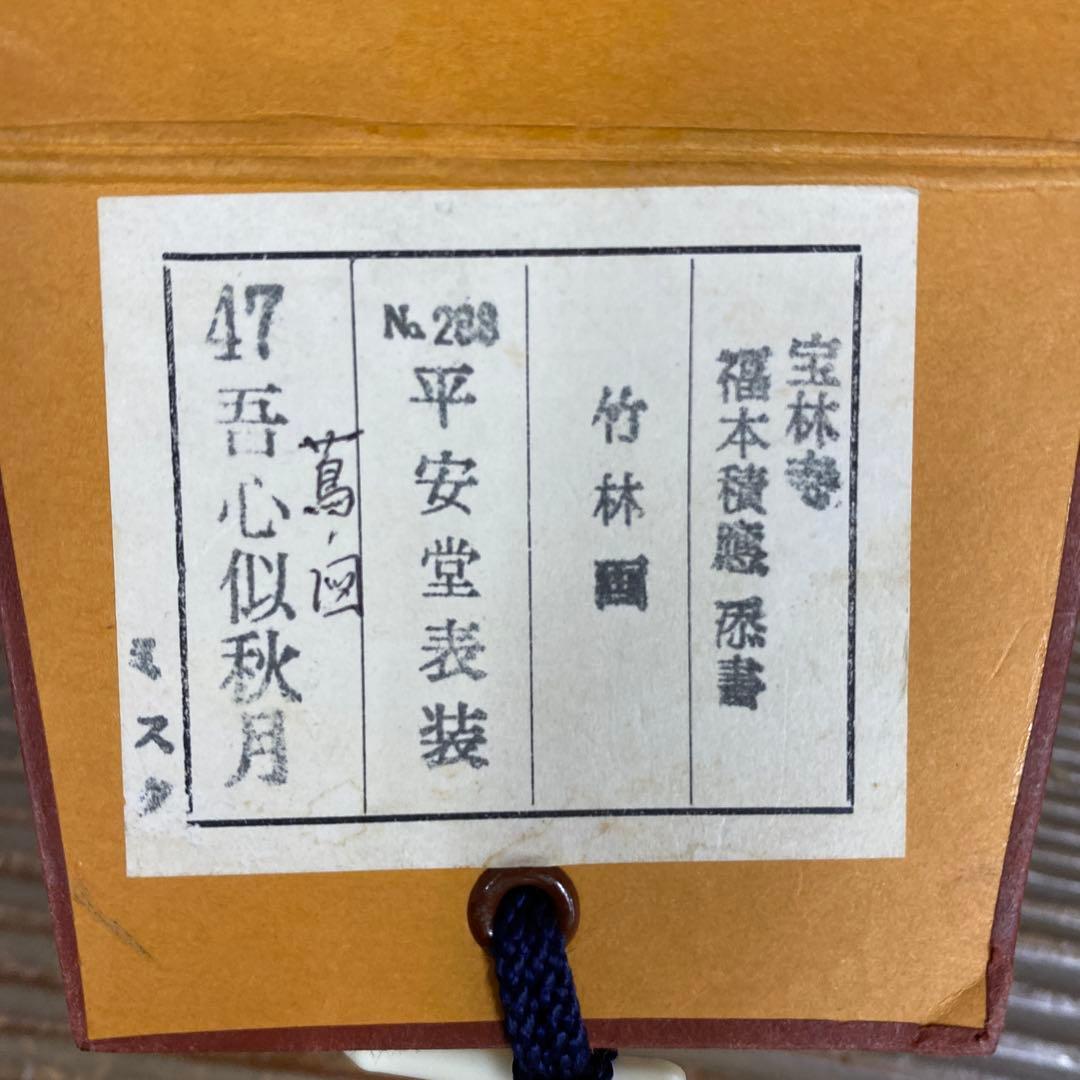 宝林寺
福本積應 添書
竹林画
No.288
平安堂表装
蔦ノ図
47
吾心似秋月
ミスタ